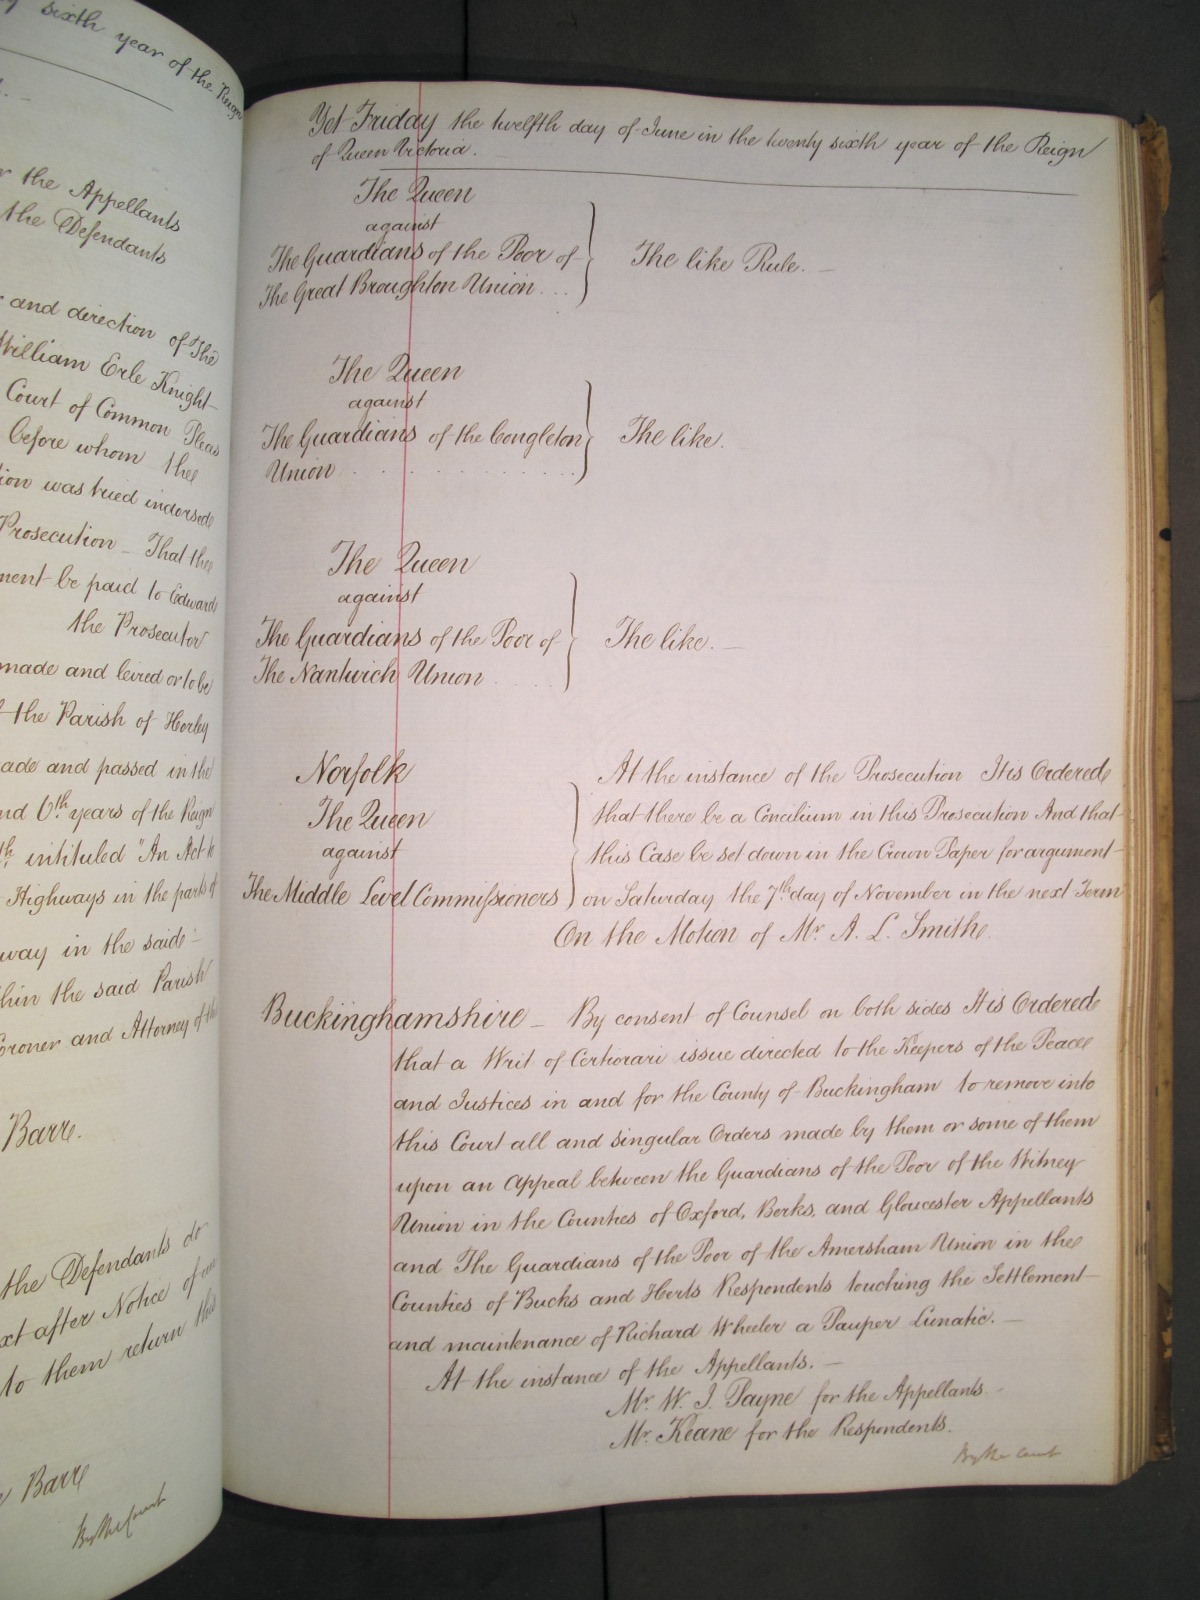 sixth year of the Reign
the Appellants
the Defendants
and direction of The
William Erle Knight
Court of Common Pleas
before whom the
was tried indorsed
Prosecution _ That the
be paid to Edward
the Prosecutor
made and levied or to be
the Parish of Horley
and passed in the
6th years of the Reign
intituled "An Act to
Highways in the parts of
way in the said
the said Parish
Coroner and Attorney of the
Barre.
the Defendants do
after Notice of
to them return this
Barre
By the Court
Yet Friday the twelfth day of June in the twenty sixth year of the Reign
of Queen Victoria.
The Queen
against
The Guardians of the Poor of
The Great Broughton Union...
The like Rule. _
The Queen
against
The Guardians of the Congleton
Union
The like.
The Queen
against
The Guardians of the Poor of
The Nantwich Union
The like. _
Norfolk
The Queen
against
The Middle Level Commissioners
At the instance of the Prosecution It is Ordered
that there be a Concilium in this Prosecution And that
this Case be set down in the Crown Paper for argument
on Saturday the 7th day of November in the next Term
On the Motion of Mr. A. L. Smith
Buckinghamshire _ By consent of Counsel on both sides It is Ordered
that a Writ of Certiorari issue directed to the Keepers of the Peace
and Justices in and for the County of Buckingham to remove into
this Court all and singular Orders made by them or some of them
upon an appeal between the Guardians of the Poor of the Witney
Union in the Counties of Oxford, Berks, and Gloucester Appellants
and The Guardians of the Poor of the Amersham Union in the
Counties of Bucks and Herts Respondents touching the Settlement
and maintenance of Richard Wheeler a Pauper Lunatic. _
At the instance of the Appellants. _
Mr. W. J. Payne for the Appellants
Mr. Keane for the Respondents.
By the Court